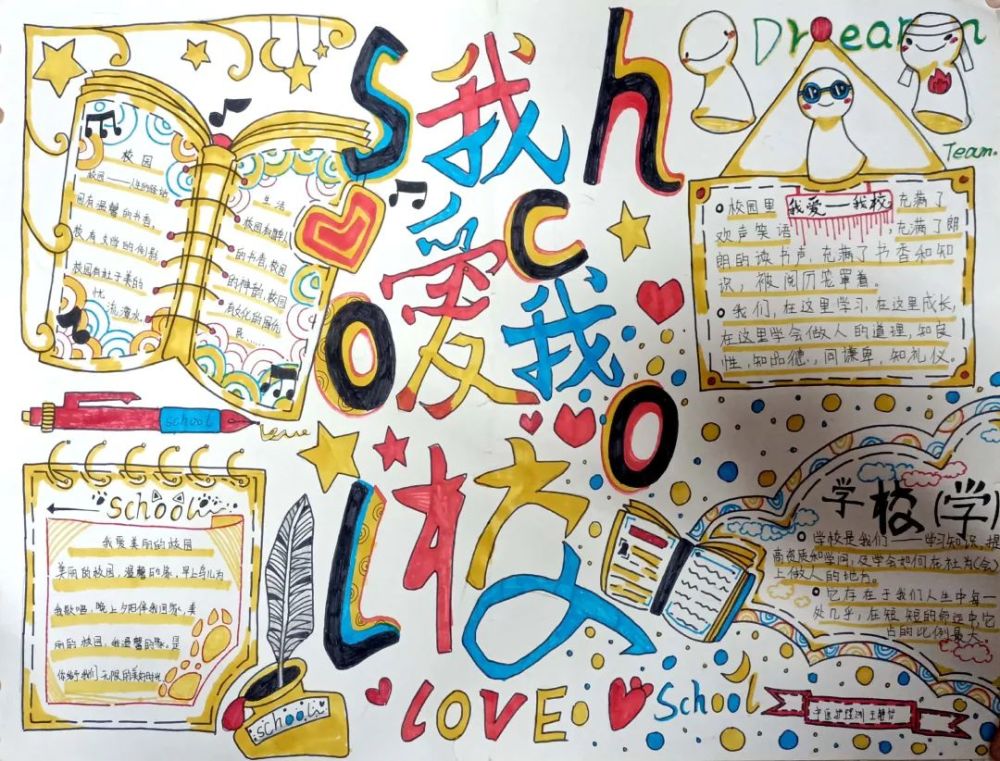 School
我愛我校
Dream
Team.
校园
园有温馨的书香,
校有文学的
校园有社于美的
忧
流淌水,
生活
的书香,校园
的神韵,校园
School
School
我爱美丽的校园
美丽的校园,温馨的家,早上鸟儿为
我歌唱,晚上夕阳伴我回家,美
丽的校园,我温馨的家,是
你给了我们无限的美好时光
school
LOVE
School
我爱一我校
校园里充满了
欢声笑语,充满了朗
朗的读书声,充满了书香和知
识,被阅历笼罩着
我们,在这里学习,在这里成长,
在这里学会做人的道理,知良
性,知品德,问谦卑,知礼仪。
学校(学
学校是我们——学习知识,提
高资质和学问,及学会如何在社为(会)
上做人的地方。
它存在于我们人生中每一
处几乎,在短短的命运中它
占的比例最大